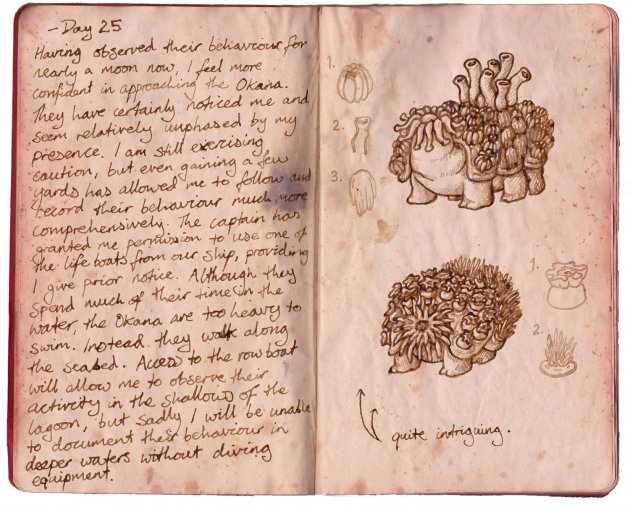 - Day 25
Having observed their behaviour for
nearly a moon now, I feel more
confident in approaching the Okana.
They have certainly noticed me and
seem relatively unphased by my
presence. I am still exercising
caution, but even gaining a few
yards has allowed me to follow and
record their behaviour much more
comprehensively. The captain has
granted me permission to use one of
the lifeboats from our ship, providing
I give prior notice. Although they
spend much of their time in the
water, the Okana are too heavy to
swim. Instead they walk along
the seabed. Access to the rowboat
will allow me to observe their
activity in the shallows of the
lagoon, but sadly I will be unable
to document their behaviour in
deeper waters without diving
equipment.
1.
2.
3.
1.
2.
quite intriguing.